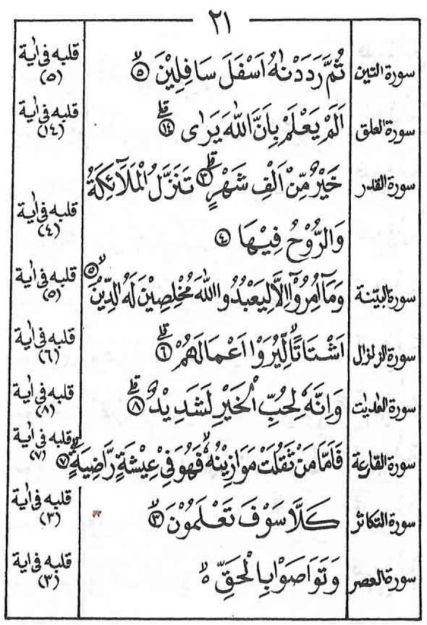 ٢١
سورة التين ثُمَّ رَدَدْنٰهُ اَسْفَلَ سَافِلِيْنَ ﴿٥﴾ قلبه فى اية (٥)
سورة العلق اَلَمْ يَعْلَمْ بِاَنَّ اللّٰهَ يَرٰى ﴿١٤﴾ قلبه فى اية (١٤)
سورة القدر خَيْرٌ مِّنْ اَلْفِ شَهْرٍ ﴿٣﴾ تَنَزَّلُ الْمَلَآئِكَةُ
وَالرُّوْحُ فِيْهَا ﴿٤﴾ قلبه فى اية (٤)
سورة البيّنة وَمَآ اُمِرُوْٓا اِلَّا لِيَعْبُدُوا اللّٰهَ مُخْلِصِيْنَ لَهُ الدِّيْنَ ﴿٥﴾ قلبه فى اية (٥)
سورة الزلزال اَشْتَاتًا لِّيُرَوْا اَعْمَالَهُمْ ﴿٦﴾ قلبه فى اية (٦)
سورة العٰديٰت وَاِنَّهٗ لِحُبِّ الْخَيْرِ لَشَدِيْدٌ ﴿٨﴾ قلبه فى اية (٨)
سورة القارعة فَاَمَّا مَنْ ثَقُلَتْ مَوَازِيْنُهٗ فَهُوَ فِيْ عِيْشَةٍ رَّاضِيَةٍ ﴿٧﴾ قلبه فى اية (٧)
سورة التكاثر كَلَّا سَوْفَ تَعْلَمُوْنَ ﴿٣﴾ قلبه فى اية (٣)
سورة العصر وَتَوَاصَوْا بِالْحَقِّ ۵ قلبه فى اية (٣)